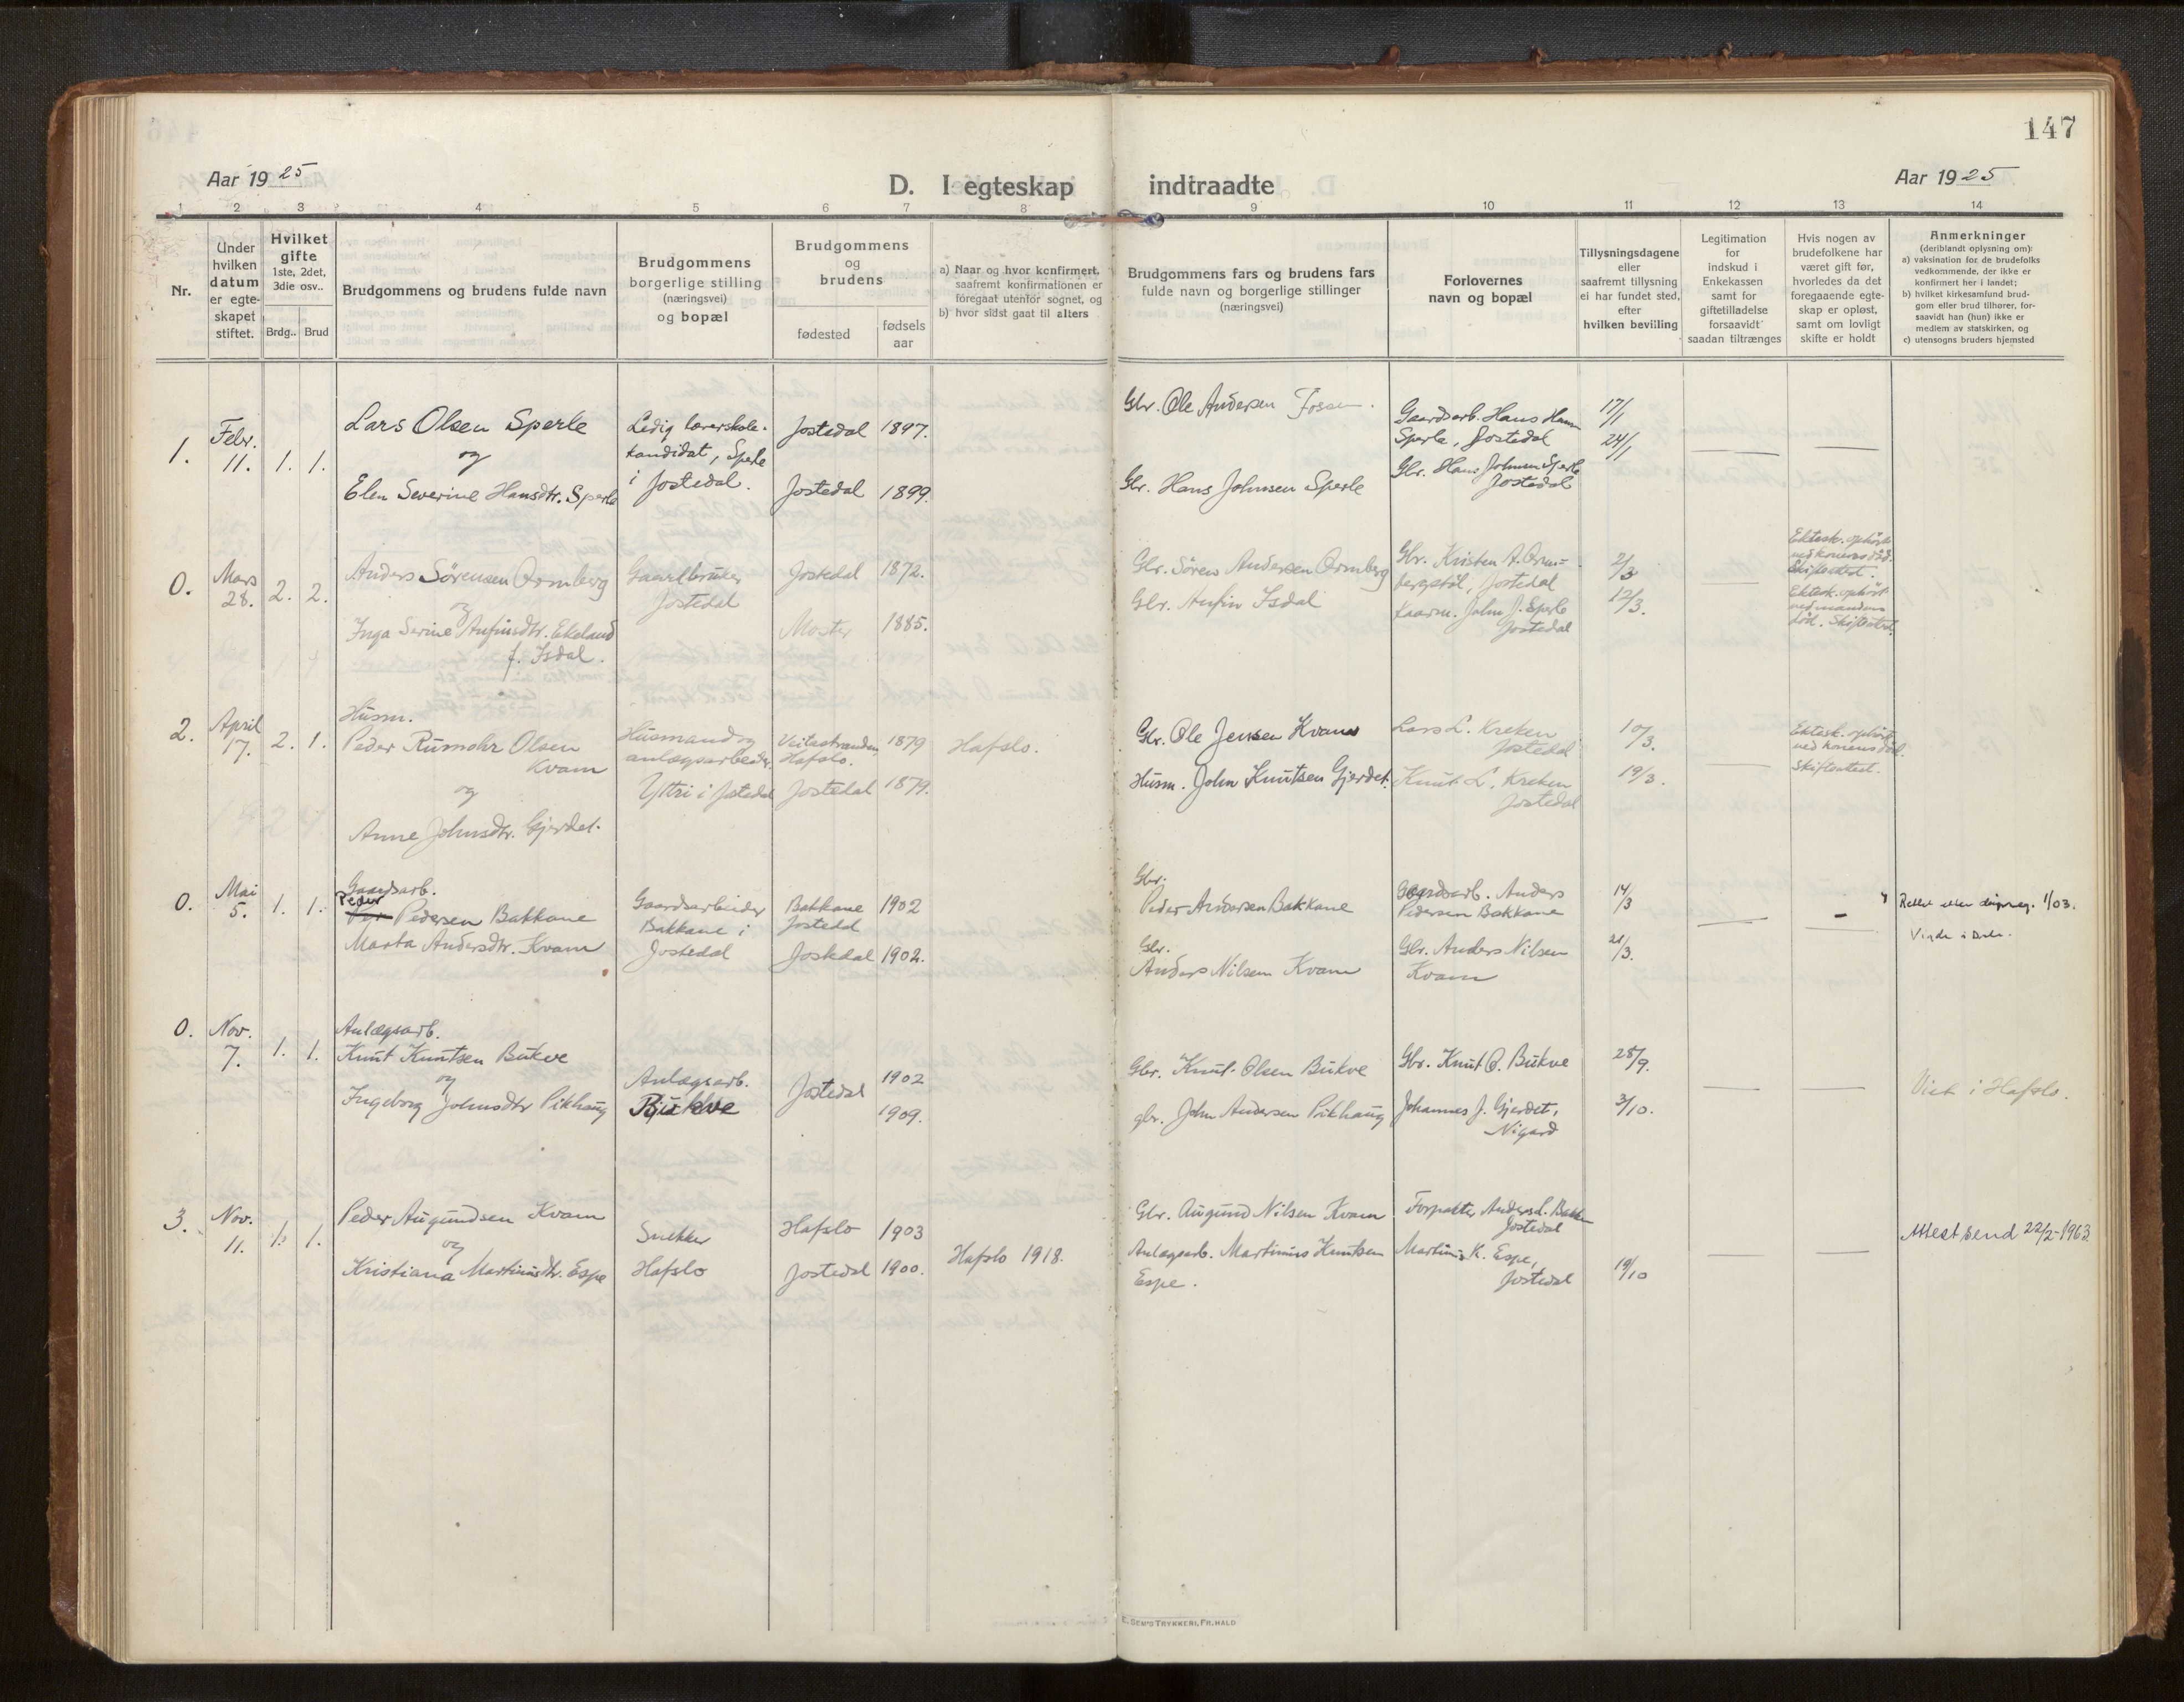 147
Aar 1925
D. I egteskap indtraadte
Aar 1925
1 2 3 4 5 6 7 8 9 10 11 12 13 14
Nr.
Under
hvilken
datum
er egte-
skapet
stiftet.
Hvilket
gifte
1ste, 2det,
3die osv..
Brdg.. Brud
Brudgommens og brudens fulde navn
Brudgommens
borgerlige stilling
(næringsvei)
og bopæl
Brudgommens
og
brudens
fødested
fødsels
aar
a) Naar og hvor konfirmert,
saafremt konfirmationen er
foregaat utenfor sognet, og
b) hvor sidst gaat til alters
Brudgommens fars og brudens fars
fulde navn og borgerlige stillinger
(næringsvei)
Forlovernes
navn og bopæl
Tillysningsdagene
eller
saafremt tillysning
ei har fundet sted,
efter
hvilken bevilling
Legitimation
for
indskud i
Enkekassen
samt for
giftetilladelse
forsaavidt
saadan tiltrænges
Hvis nogen av
brudefolkene har
været gift før,
hvorledes da det
foregaaende egte-
skap er opløst,
samt om lovligt
skifte er holdt
Anmerkninger
(deriblandt oplysning om):
a) vaksination for de brudefolks
vedkommende, der ikke er
konfirmert her i landet;
b) hvilket kirkesamfund brud-
gom eller brud tilhører, for-
saavidt han (hun) ikke er
medlem av statskirken, og
c) utensogns bruders hjemsted
1.
Febr.
11.
1. 1.
Lars Olsen Sperle
og
Elen Severine Hansdtr. Sperle
Ledig lærerskole-
kandidat, Sperle
i Jostedal.
Jostedal 1897.
Jostedal 1899.
Gbr. Ole Andersen Fossen.
Gbr. Hans Johnsen Sperle
Gaardsarb. Hans Hansen
Sperle, Jostedal
Gbr. Hans Johnsen Sperle
Jostedal
17/1
24/1
— —
0.
Mars
28.
2. 2.
Anders Sörensen Ormberg
og
Inga Serine Anfinsdtr. Ekeland
f. Isdal.
Gaardbruker
Jostedal
Jostedal 1872.
Moster 1885.
Gbr. Sören Andersen Ormberg
Gbr. Anfin Isdal
Gbr. Kristen A. Orm-
bergstöl, Jostedal
Kaarm. John J. Sperle
Jostedal
2/3
12/3.
—
Ektesk. ophört
ved konens död.
Skifteattest.
Ektesk. ophört
ved mandens
död. Skifteattest.
2.
April
17.
2. 1.
Husm.
Peder Rumohr Olsen
Kvam
og
Anne Johnsdtr. Gjerdet.
Husmand og
anlægsarbeider.
Yttri i Jostedal
Veitastranden,
Hafslo.
1879
Jostedal 1879.
Hafslo.
Gbr. Ole Jensen Kvam
Husm. John Knutsen Gjerdet.
Lars L. Kreken
Jostedal
Knut L. Kreken
Jostedal
10/3.
19/3.
—
Ektesk. ophört
ved konens död.
Skifteattest.
0.
Mai
5.
1. 1.
Gaardsarb.
Peder
Per Pedersen Bakkane
Marta Andersdtr. Kvam
Gaardsarbeider
Bakkane i
Jostedal
Bakkane
Jostedal
1902
Jostedal 1902.
Gbr.
Peder Andersen Bakkane
Gbr.
Anders Nilsen Kvam
Gaardsarb. Anders
Pedersen Bakkane
Gbr. Anders Nilsen
Kvam
14/3
21/3.
— —
Rettet etter dåpsreg. 1/03.
0.
Nov.
7.
1. 1.
Anlægsarb.
Knut Knutsen Bukve
og
Ingeborg Johnsdtr Pikhaug
Anlægsarb.
Bukve
Jostedal
1902
1909.
Gbr. Knut Olsen Bukve
gbr. John Andersen Pikhaug
Gbr. Knut O. Bukve
Johannes J. Gjerdet,
Nigard
25/9.
3/10.
— —
Viet i Hafslo.
3.
Nov.
11.
1. 1.
Peder Augundsen Kvam
og
Kristiana Martinusdtr. Espe
Snekker
Hafslo
Hafslo 1903
Jostedal 1900.
Hafslo 1918.
Gbr. Augund Nilsen Kvam
Anlægsarb. Martinus Knutsen
Espe.
Forpakter Anders L. Bakken
Jostedal
Martinus K. Espe,
Jostedal
19/10
— —
Attest send 22/2-1963
E. SEM'S TRYKKERI, FR.HALD